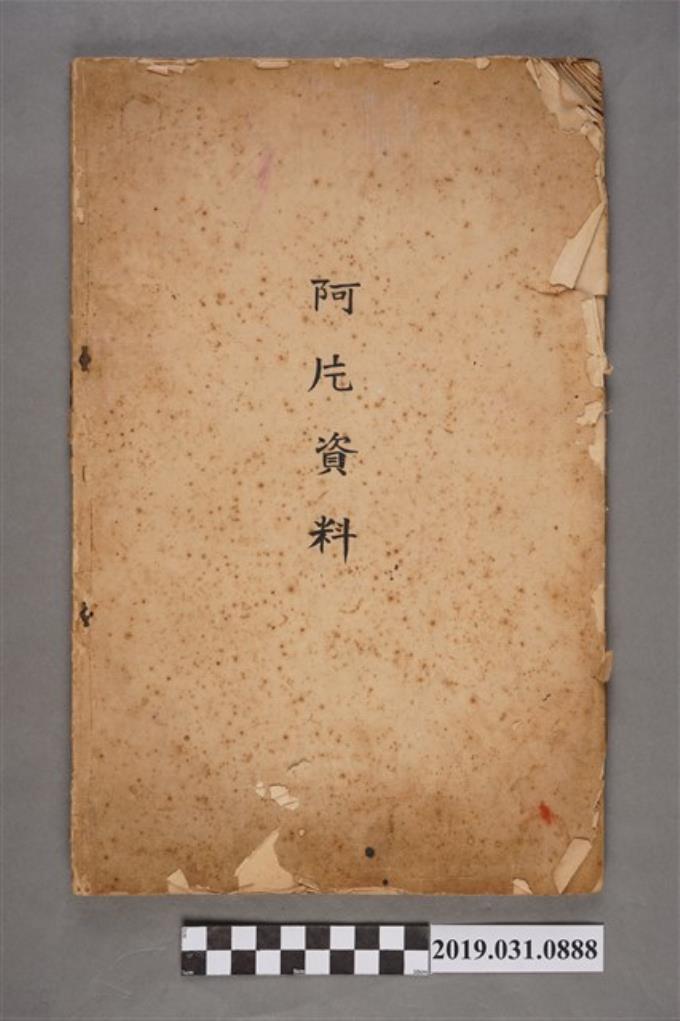 阿片資料
2019.031.0888